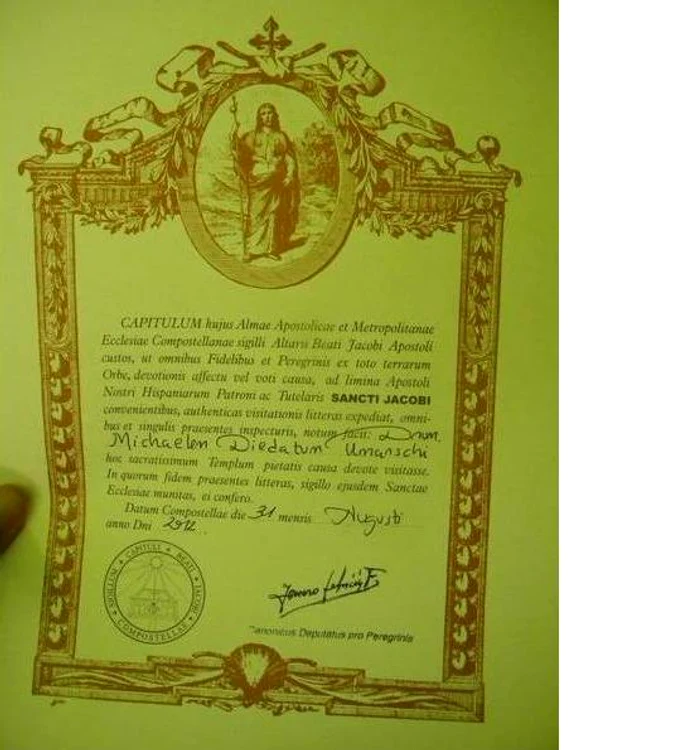 CAPITULUM hujus Almae Apostolicae et Metropolitanae
Ecclesiae Compostellanae sigilli Altaris Beati Jacobi Apostoli
custos, ut omnibus Fidelibus et Peregrinis ex toto terrarum
Orbe, devotionis affectu vel voti causa, ad limina Apostoli
Nostri Hispaniarum Patroni ac Tutelaris SANCTI JACOBI
convenientibus, authenticas visitationis litteras expediat, omni-
bus et singulis praesentes inspecturis, notum facit: Dnum.
Michaelem Diedatum Umanschi
hoc sacratissimum Templum pietatis causa devote visitasse.
In quorum fidem praesentes litteras, sigillo ejusdem Sanctae
Ecclesiae munitas, ei confero.
Datum Compostellae die 31 mensis Augusti
anno Dni 2012.
SIGILLUM CAPITULI BEATI JACOBI COMPOSTELLAE
Canonicus Deputatus pro Peregrinis